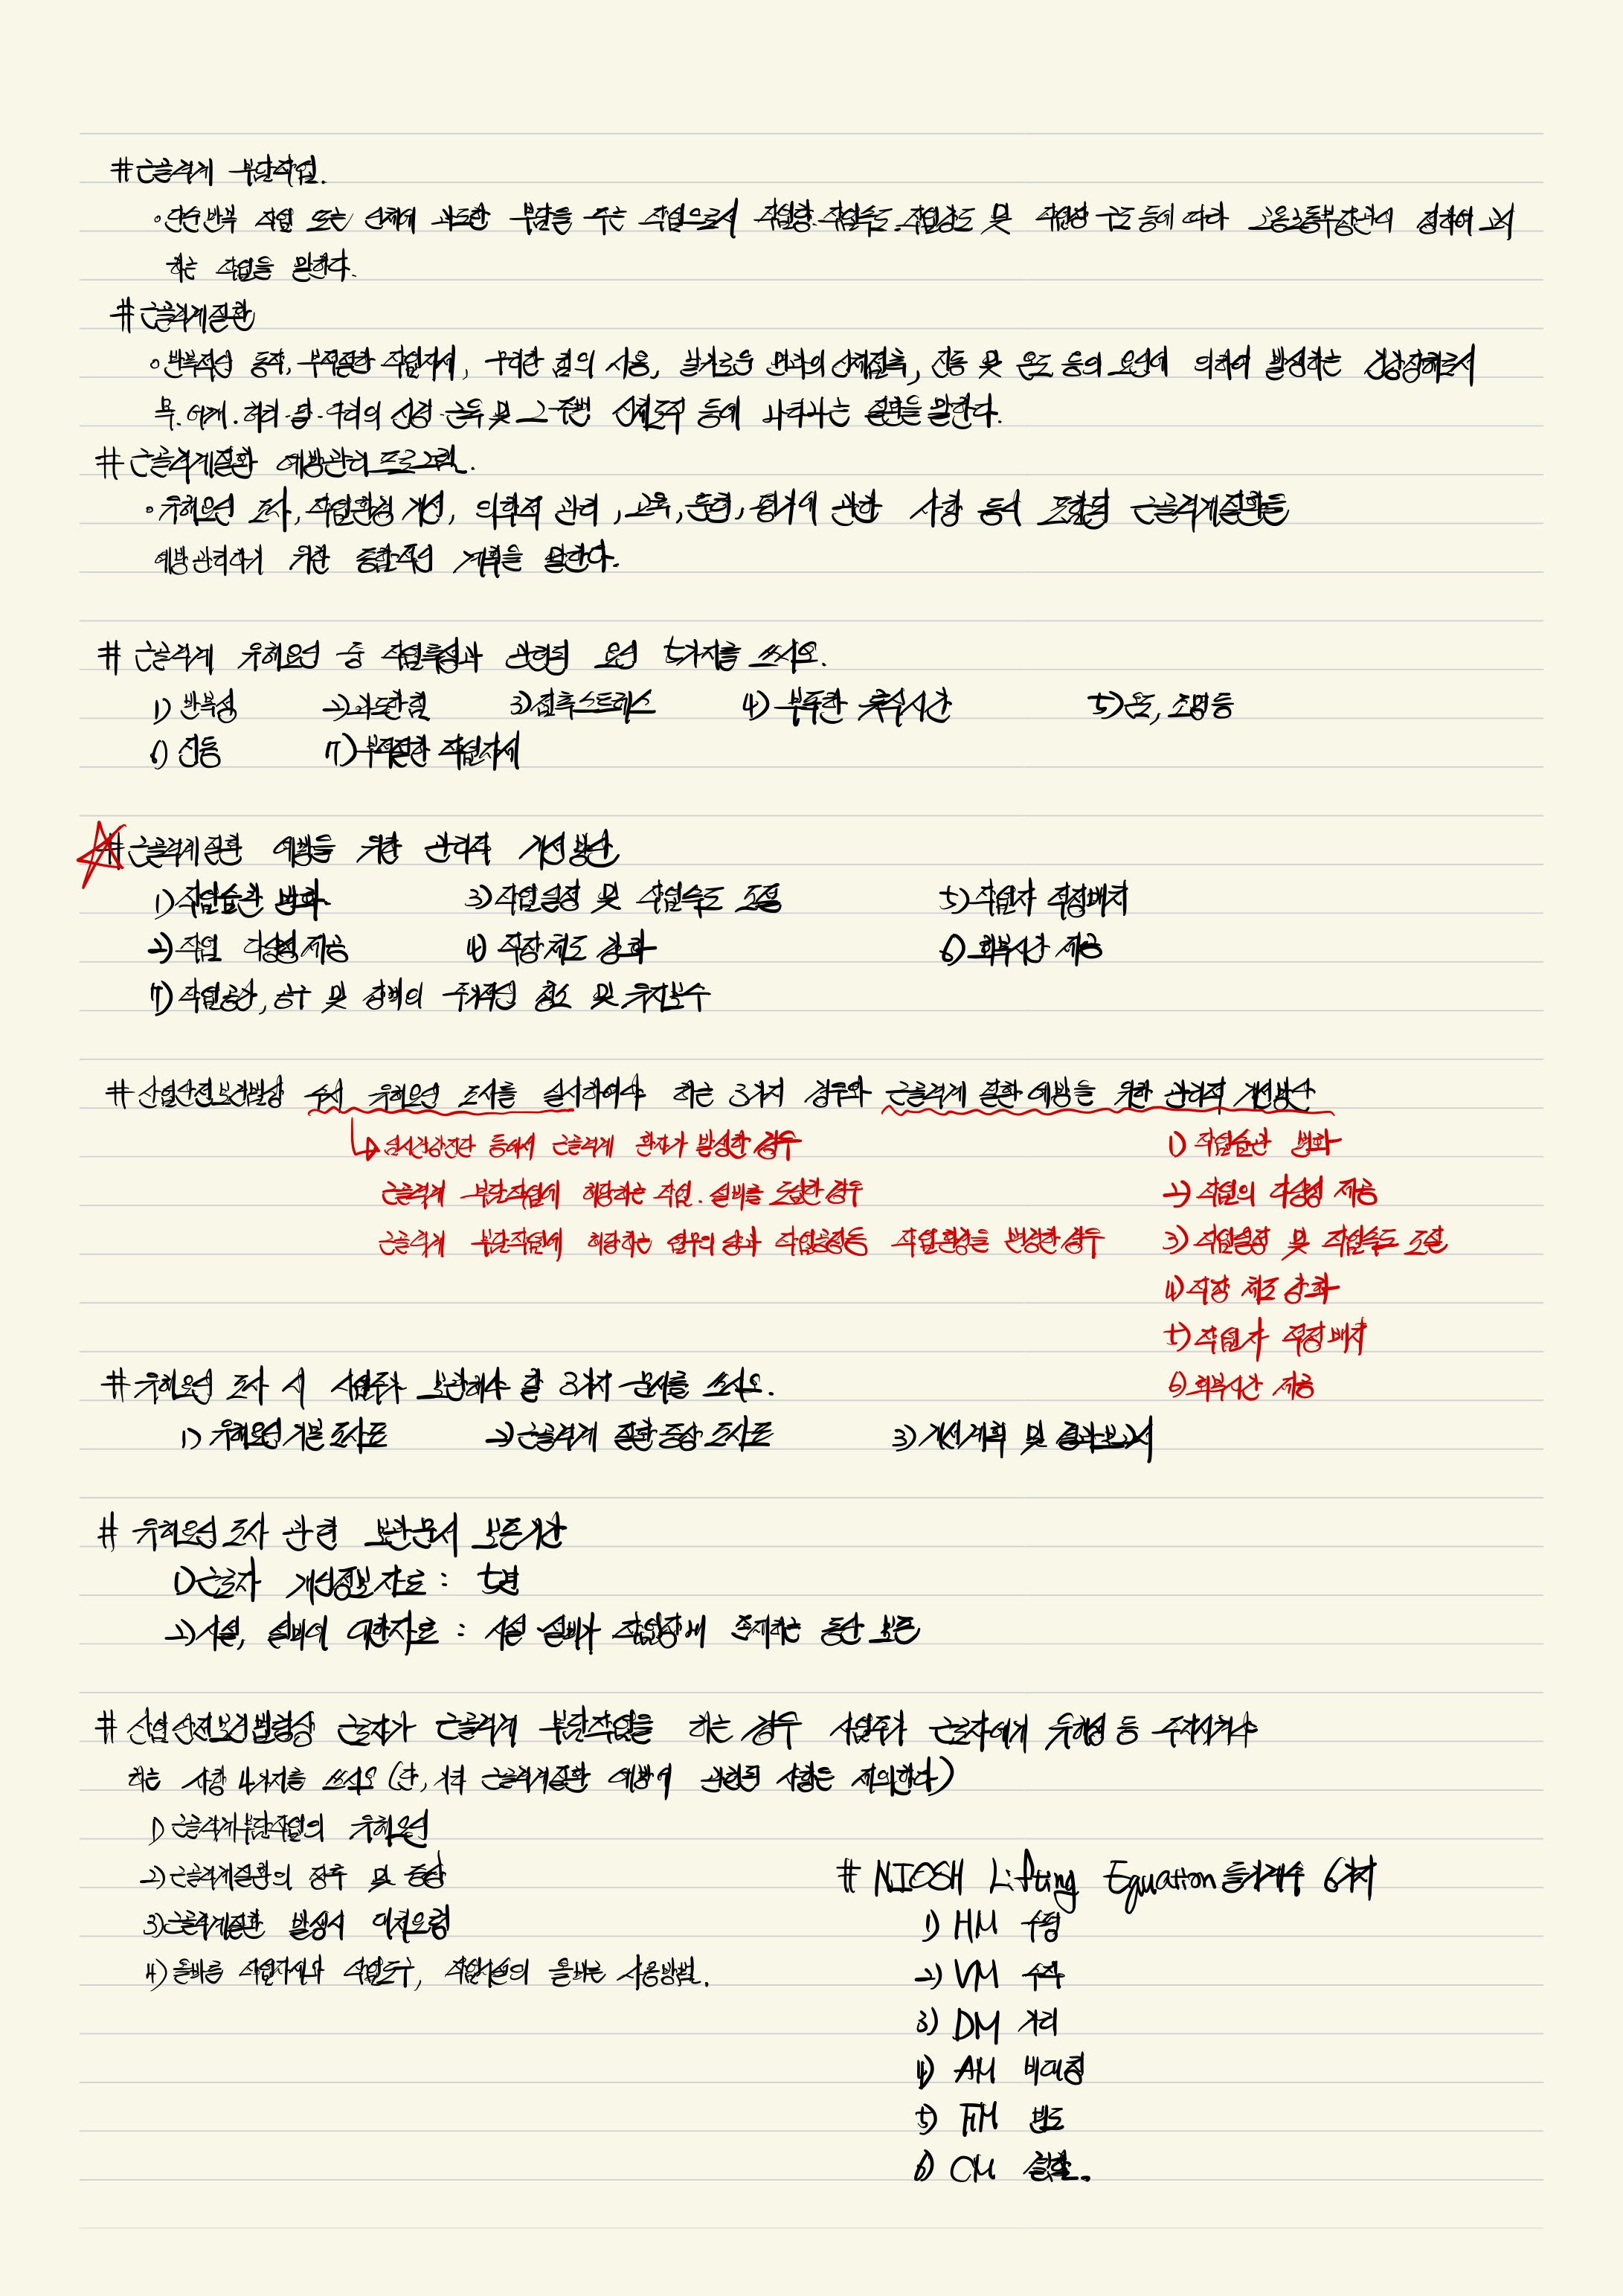 #근골격계 부담작업.
◦단순반복 작업 또는 신체에 과도한 부담을 주는 작업으로서 작업량·작업속도·작업강도 및 작업장 구조 등에 따라 고용노동부장관이 정하여 고시
하는 작업을 말한다.
#근골격계질환
◦반복적인 동작, 부적절한 작업자세, 무리한 힘의 사용, 날카로운 면과의 신체접촉, 진동 및 온도 등의 요인에 의하여 발생하는 건강장해로서
목·어깨·허리·팔·다리의 신경·근육 및 그 주변 신체조직 등에 나타나는 질환을 말한다.
#근골격계질환 예방관리 프로그램.
◦유해요인 조사, 작업환경 개선, 의학적 관리, 교육, 훈련, 평가에 관한 사항 등이 포함된 근골격계질환을
예방관리하기 위한 종합적인 계획을 말한다.
# 근골격계 유해요인 중 작업특성과 관련된 요인 5가지를 쓰시오.
1) 반복성 2)과도한힘 3)접촉스트레스 4) 부족한 휴식시간 5)온도, 조명등
6) 진동 7)부적절한 작업자세
#근골격계질환 예방을 위한 관리적 개선방안
1)작업습관 변화 3)작업일정 및 작업속도 조절 5)작업자 적정배치
2)작업 다양성제공 4) 직장체조 강화 6)회복시간 제공
7)작업공간, 공구 및 장비의 주기적인 청소 및 유지보수
#산업안전보건법상 수시 유해요인 조사를 실시하여야 하는 3가지 경우와 근골격계 질환 예방을 위한 관리적 개선방안
↳임시건강진단 등에서 근골격계 환자가 발생한 경우 1) 작업습관 변화
근골격계 부담작업에 해당하는 작업·설비를 도입한 경우 2) 작업의 다양성 제공
근골격계 부담작업에 해당하는 업무의 양과 작업공정등 작업환경을 변경한 경우 3) 작업일정 및 작업속도 조절
4)직장 체조 강화
5)작업자 적정배치
#유해요인 조사 시 사업주가 보관해야 할 3가지 문서를 쓰시오. 6)회복시간 제공
1) 유해요인기본조사표 2)근골격계 질환증상조사표 3)개선계획 및 결과보고서
# 유해요인조사 관련 보관문서 보존기간
1)근로자 개인정보자료 : 5년
2)시설, 설비에 대한자료 : 시설 설비가 작업장에 존재하는 동안 보존
# 산업안전보건법령상 근로자가 근골격계 부담작업을 하는 경우 사업주가 근로자에게 유해성 등 주지시켜야
하는 사항 4가지를 쓰시오 (단, 기타 근골격계질환 예방에 관련된 사항은 제외한다)
1) 근골격계부담작업의 유해요인
2)근골격계질환의 징후 및 증상 # NIOSH Lifting Equation 들기계수 6가지
3)근골격계질환 발생시 대처요령 1) HM 수평
4) 올바른 작업자세와 작업도구, 작업시설의 올바른 사용방법. 2) VM 수직
3) DM 거리
4) AM 비대칭
5) FM 빈도
6) CM 결합.